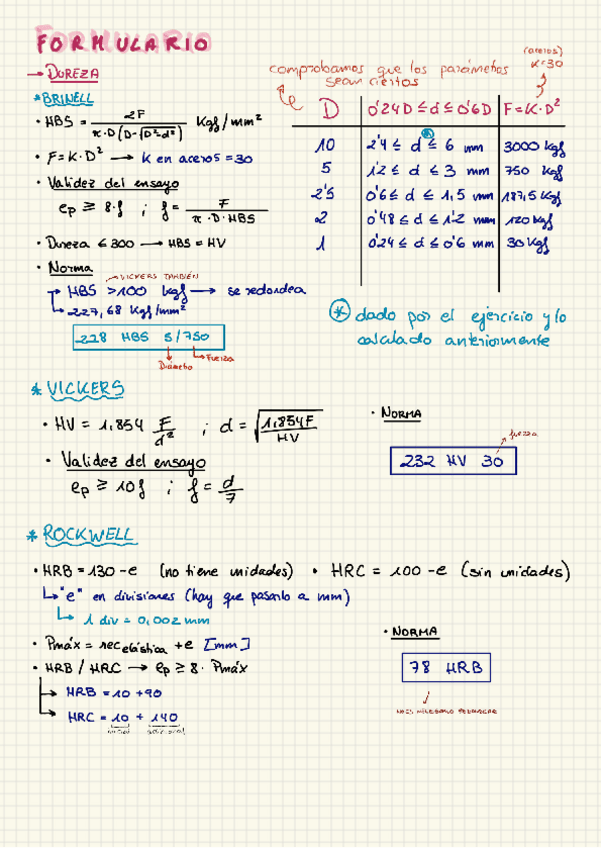 FORMULARIO
→ DUREZA
* BRINELL
• HBS = 2F / (π·D(D-√(D²-d²))) Kgf/mm²
• F=K·D² → K en aceros = 30
• Validez del ensayo
ep ≥ 8·f ; f = F / (π·D·HBS)
• Dureza ≤ 300 → HBS = HV
• Norma
→ VICKERS TAMBIÉN
→ HBS >100 kgf → se redondea
↳ 227,68 Kgf/mm²
228 HBS 5/750
Diámetro
Fuerza
comprobamos que los parámetros
sean ciertos
(aceros)
K=30
D | 0'24D ≤ d ≤ 0'6D | F=K·D²
10 | 2'4 ≤ d ≤ 6 mm | 3000 Kgf
5 | 1'2 ≤ d ≤ 3 mm | 750 Kgf
2'5 | 0'6 ≤ d ≤ 1,5 mm | 187,5 Kgf
2 | 0'48 ≤ d ≤ 1'2 mm | 120 Kgf
1 | 0'24 ≤ d ≤ 0'6 mm | 30 Kgf
* dado por el ejercicio y/o
calculado anteriormente
* VICKERS
• HV = 1,854 F/d² ; d = √(1,854F/HV)
• Validez del ensayo
ep ≥ 10f ; f = d/7
• NORMA
fuerza
232 HV 30
* ROCKWELL
• HRB = 130 - e (no tiene unidades) • HRC = 100 - e (sin unidades)
↳ "e" en divisiones (hay que pasarlo a mm)
↳ 1 div = 0,002 mm
• Pmáx = rec elástica + e [mm]
• HRB / HRC → ep ≥ 8 · Pmáx
→ HRB = 10 + 90
→ HRC = 10 + 140
inicial adicional
• NORMA
78 HRB